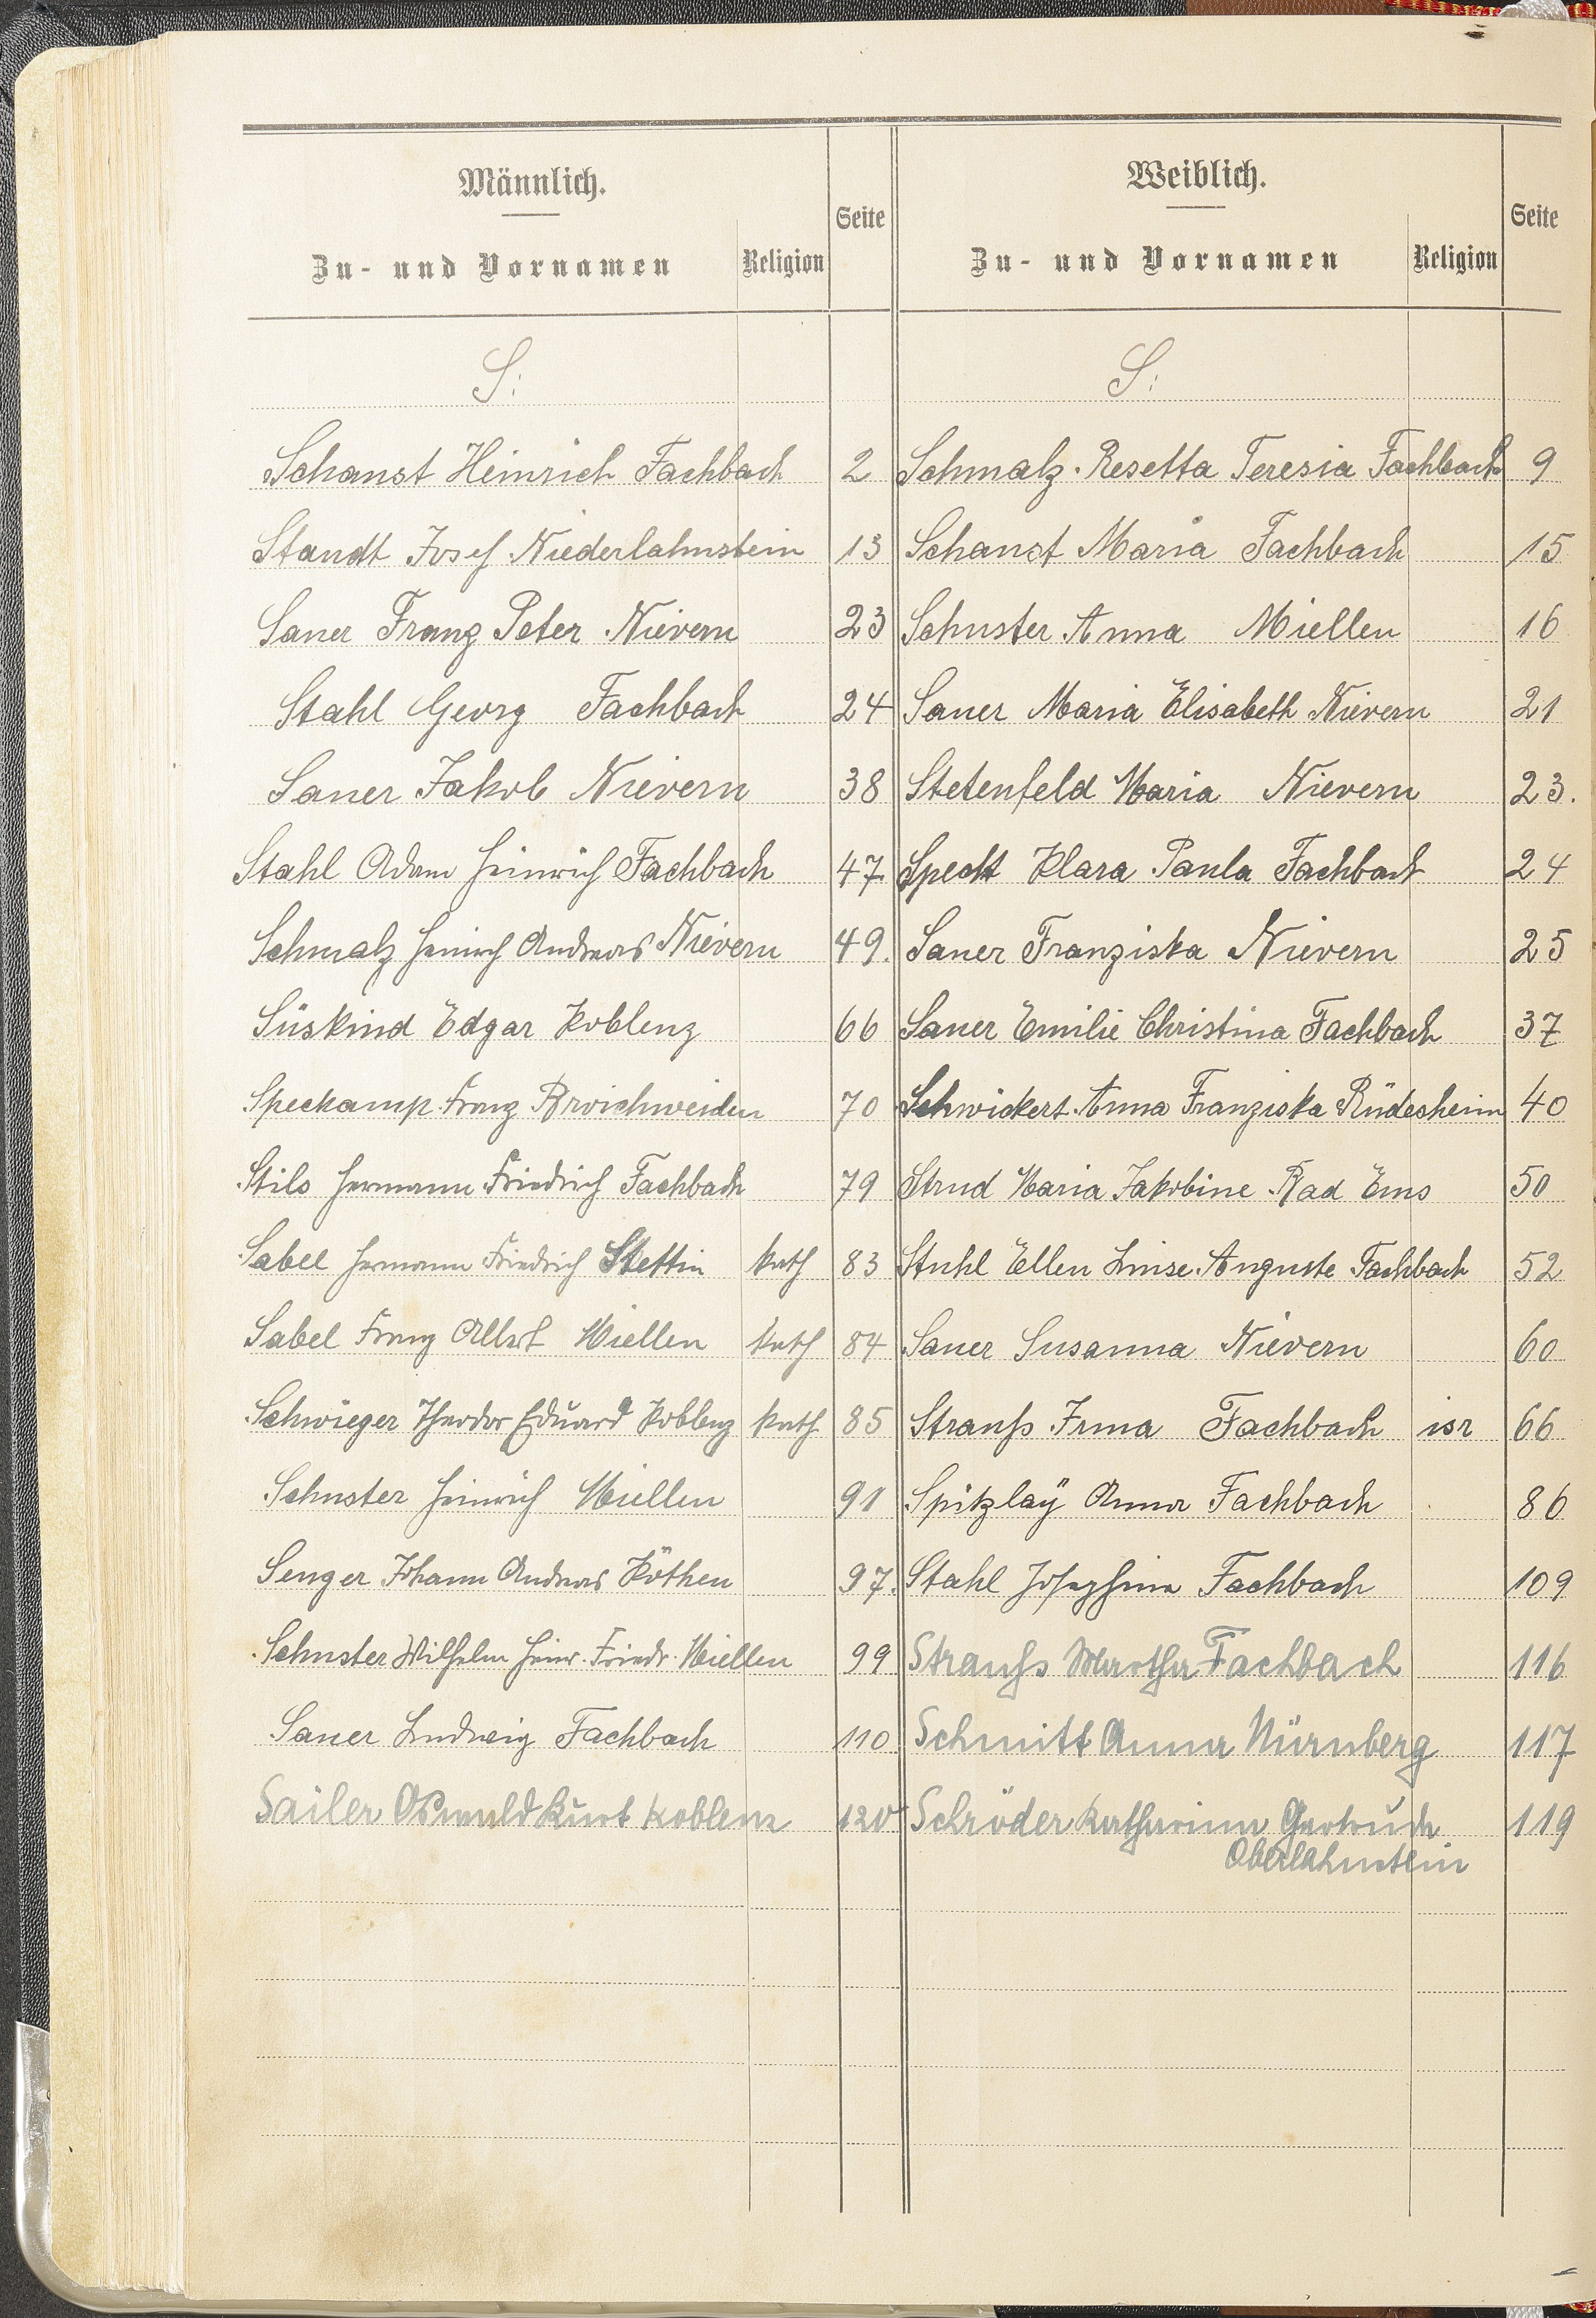 Männlich.
Zu- und Vornamen
Religion
Seite
S:
Schanst Heinrich Fachbach 2
Staudt Josef Niederlahnstein 13
Sauer Franz Peter Nievern 23
Stahl Georg Fachbach 24
Sauer Jakob Nievern 38
Stahl Adam Heinrich Fachbach 47
Schmalz Heinrich Andreas Nievern 49.
Süskind Edgar Koblenz 66
Speckamp Franz Broichweiden 70
Stilo Hermann Friedrich Fachbach 79
Sabel Hermann Friedrich Stettin kath 83
Sabel Franz Albert Miellen kath 84
Schwieger Theodor Eduard Koblenz kath 85
Schuster Heinrich Miellen 91
Senger Johann Andreas Köthen 97.
Schuster Wilhelm Heinr. Friedr. Miellen 99
Sauer Ludwig Fachbach 110
Sailer Oswald Kurt Koblenz 120
Weiblich.
Zu- und Vornamen
Religion
Seite
S:
Schmalz Resetta Teresia Fachbach 9
Schanst Maria Fachbach 15
Schuster Anna Miellen 16
Sauer Maria Elisabeth Nievern 21
Stetenfeld Maria Nievern 23.
Specht Klara Paula Fachbach 24
Sauer Franziska Nievern 25
Sauer Emilie Christina Fachbach 37
Schwickert Anna Franziska Rüdesheim 40
Strud Maria Jakobine Bad Ems 50
Stuhl Ellen Luise Auguste Fachbach 52
Sauer Susanna Nievern 60
Strauß Irma Fachbach isr 66
Spitzlaÿ Anna Fachbach 86
Stahl Josephina Fachbach 109
Strauß Martha Fachbach 116
Schmitt Anna Nürnberg 117
Schröder Katharina Gertrude 119
Oberlahnstein